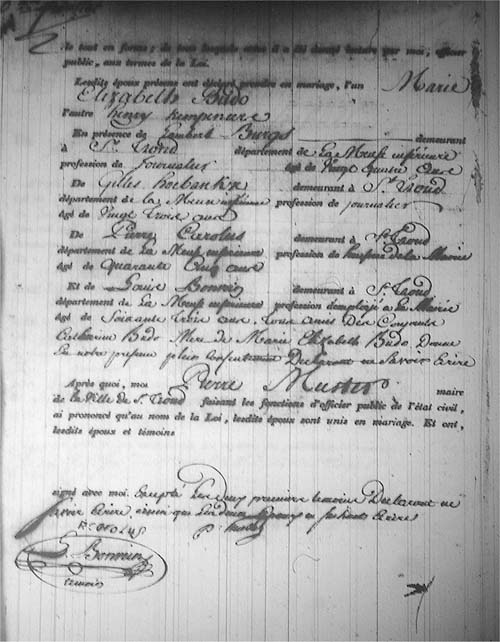 le tout en forme; de tous lesquels actes il a été donné lecture par moi, officier
public, aux termes de la Loi.
Lesdits époux présens ont déclaré prendre en mariage, l'un Marie
Elizabeth Budo
l'autre henry kempeneire
En présence de Lambert Burgs demeurant
à St. Trond département de La Meuse inférieure
profession de Journalier âgé de Vingt quatre ans
De Gilles demeurant à St. Trond
département de la Meuse inférieure profession de journalier
âgé de Vingt trois ans
De Pierre Carolus demeurant à St. Trond
département de La Meuse inférieure profession de de la Mairie
âgé de Quarante Cinq ans
Et de Louis Bonvoin demeurant à St. Trond
département de La Meuse inférieure profession d'emploijé a la Mairie
âgé de Soixante Trois ans, tous amis des Conjoints
Catharine Budo Mere de Marie Elizabeth Budo Donne
En notre présence plein consentement Declarant ne Savoir Ecrire
Après quoi, moi Pierre maire
de la Ville de St. Trond faisant les fonctions d'officier public de l'état civil,
ai prononcé qu'au nom de la Loi, lesdits époux sont unis en mariage. Et ont,
lesdits époux et témoins
signé avec moi. Excepté Les deux premiers temoins Declarant ne
Savoir Ecrire
Bonvoin
temoin